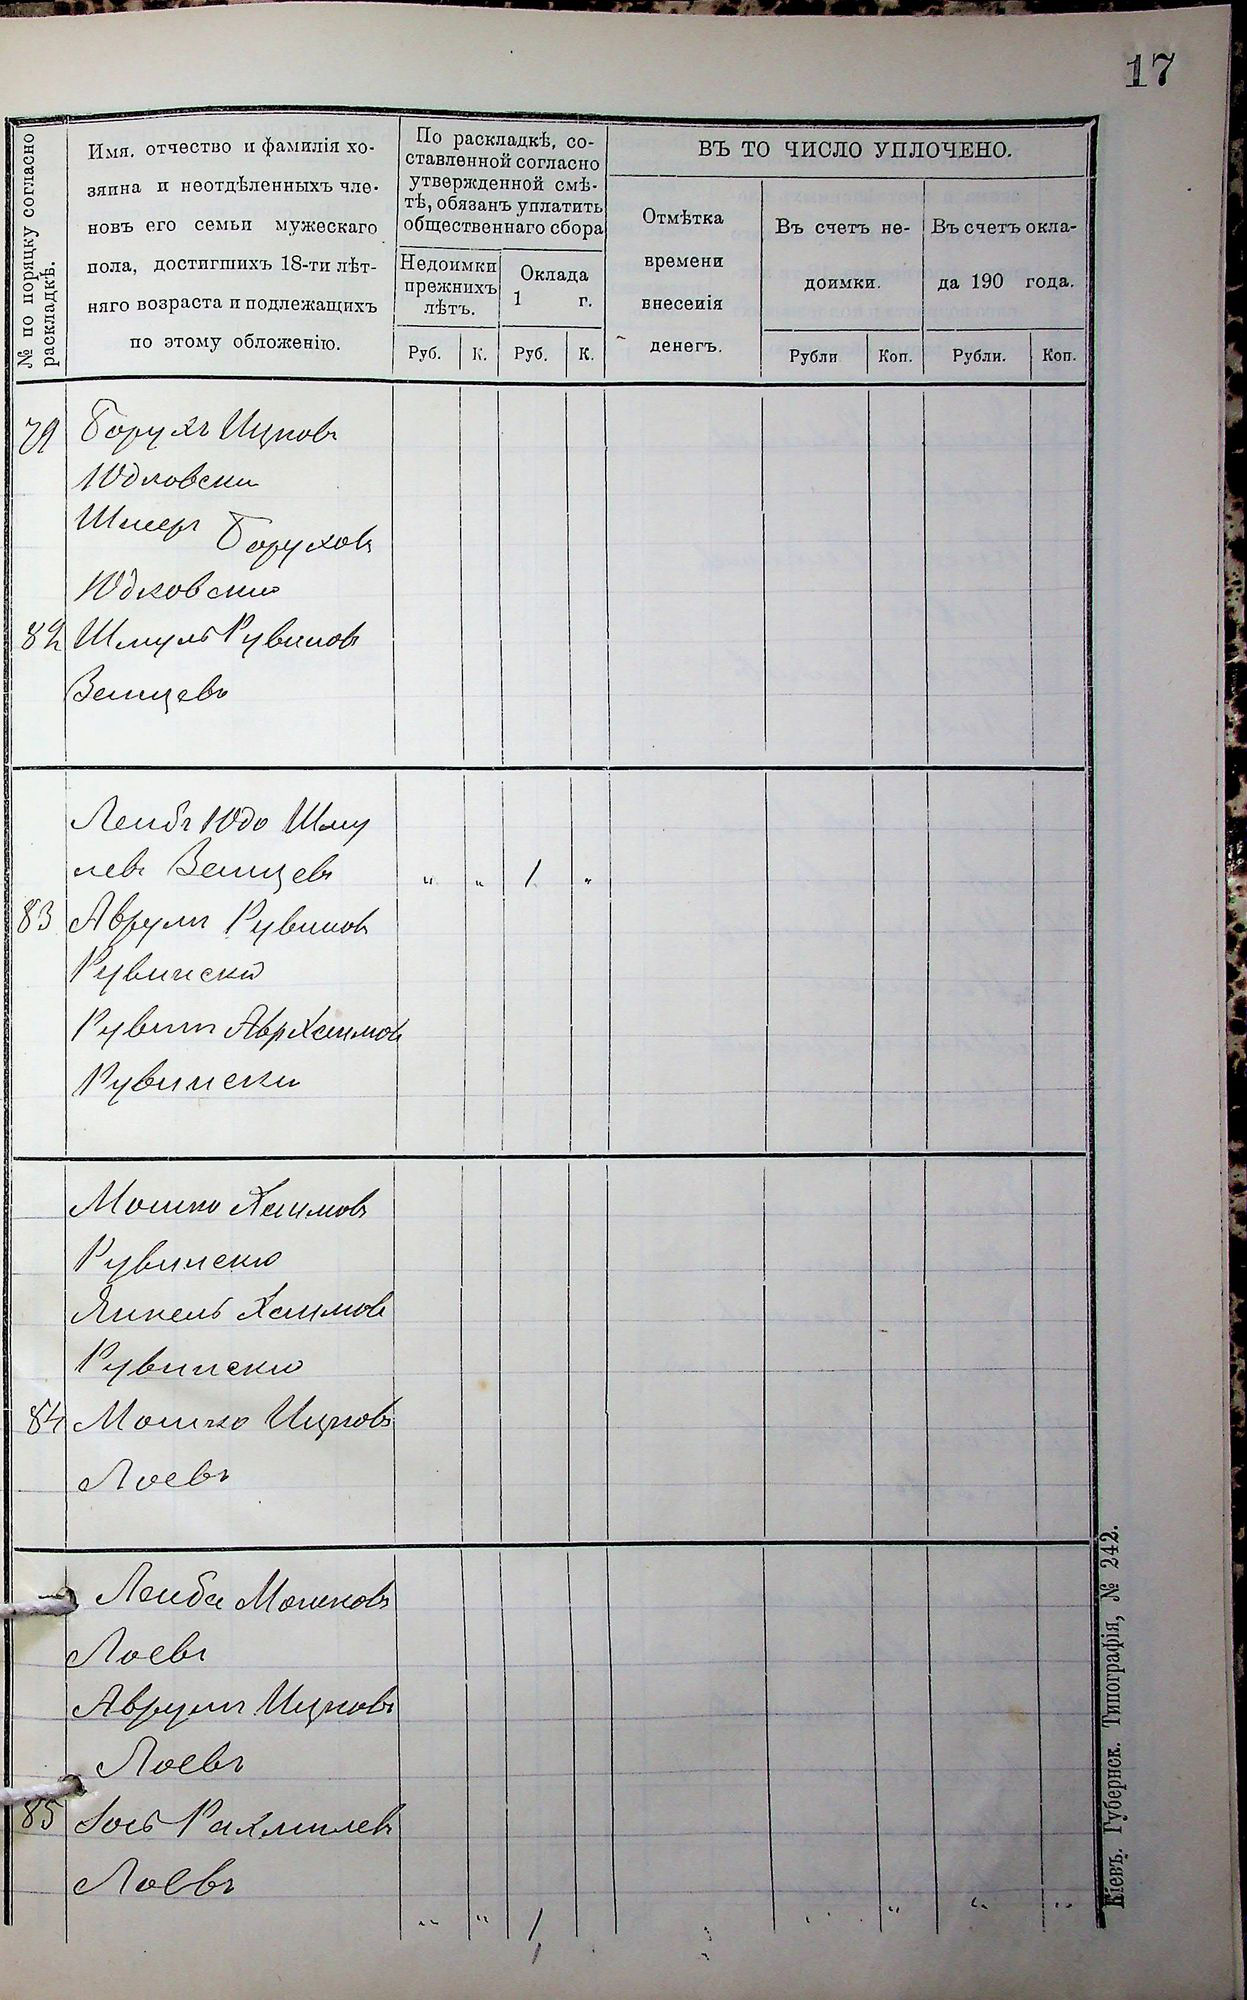 17
№ по поряцку согласно
раскладкѣ.
Имя. отчество и фамилія хо-
зяина и неотдѣленныхъ чле-
новъ его семьи мужескаго
пола, достигшихъ 18-ти лѣт-
няго возраста и подлежащихъ
по этому обложенію.
По раскладкѣ, со-
ставленной согласно
утвержденной смѣ-
тѣ, обязанъ уплатить
общественнаго сбора
Недоимки
прежнихъ
лѣтъ.
Оклада
1 г.
Руб. К. Руб. К.
ВЪ ТО ЧИСЛО УПЛОЧЕНО.
Отмѣтка
времени
внесенія
денегъ.
Въ счетъ не-
доимки.
Въ счетъ окла-
да 190 года.
Рубли Коп. Рубли. Коп.
79 Борухъ Ицковъ
Юдковски
Шмеръ Боруховъ
Юдковскій
82 Шмуль Рувиновъ
Вейцевъ
Лейбъ Юдо Шму
левъ Вейцевъ „ „ 1 „
83 Аврумъ Рувиновъ
Рувинскій
Рувинъ АврХаимовъ
Рувински
Мошко Хаимовъ
Рувинскій
Янкель Хаимовъ
Рувинскій
84 Мошко Ицковъ
Лоевъ
Лейба Мошковъ
Лоевъ
Аврумъ Ицковъ
Лоевъ
85 Іось Рахмилевъ
Лоевъ
„ „ 1 „ „ „
Кіевъ. Губернск. Типографія, № 242.